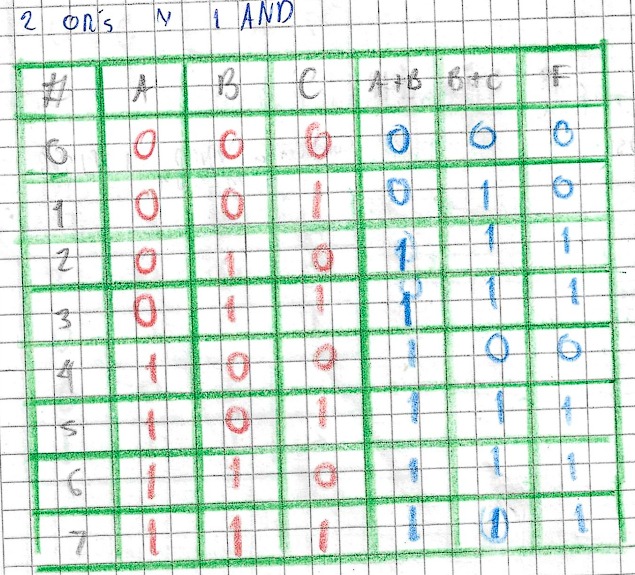 2 OR's y 1 AND
# A B C A+B B+C F
0 0 0 0 0 0 0
1 0 0 1 0 1 0
2 0 1 0 1 1 1
3 0 1 1 1 1 1
4 1 0 0 1 0 0
5 1 0 1 1 1 1
6 1 1 0 1 1 1
7 1 1 1 1 1 1